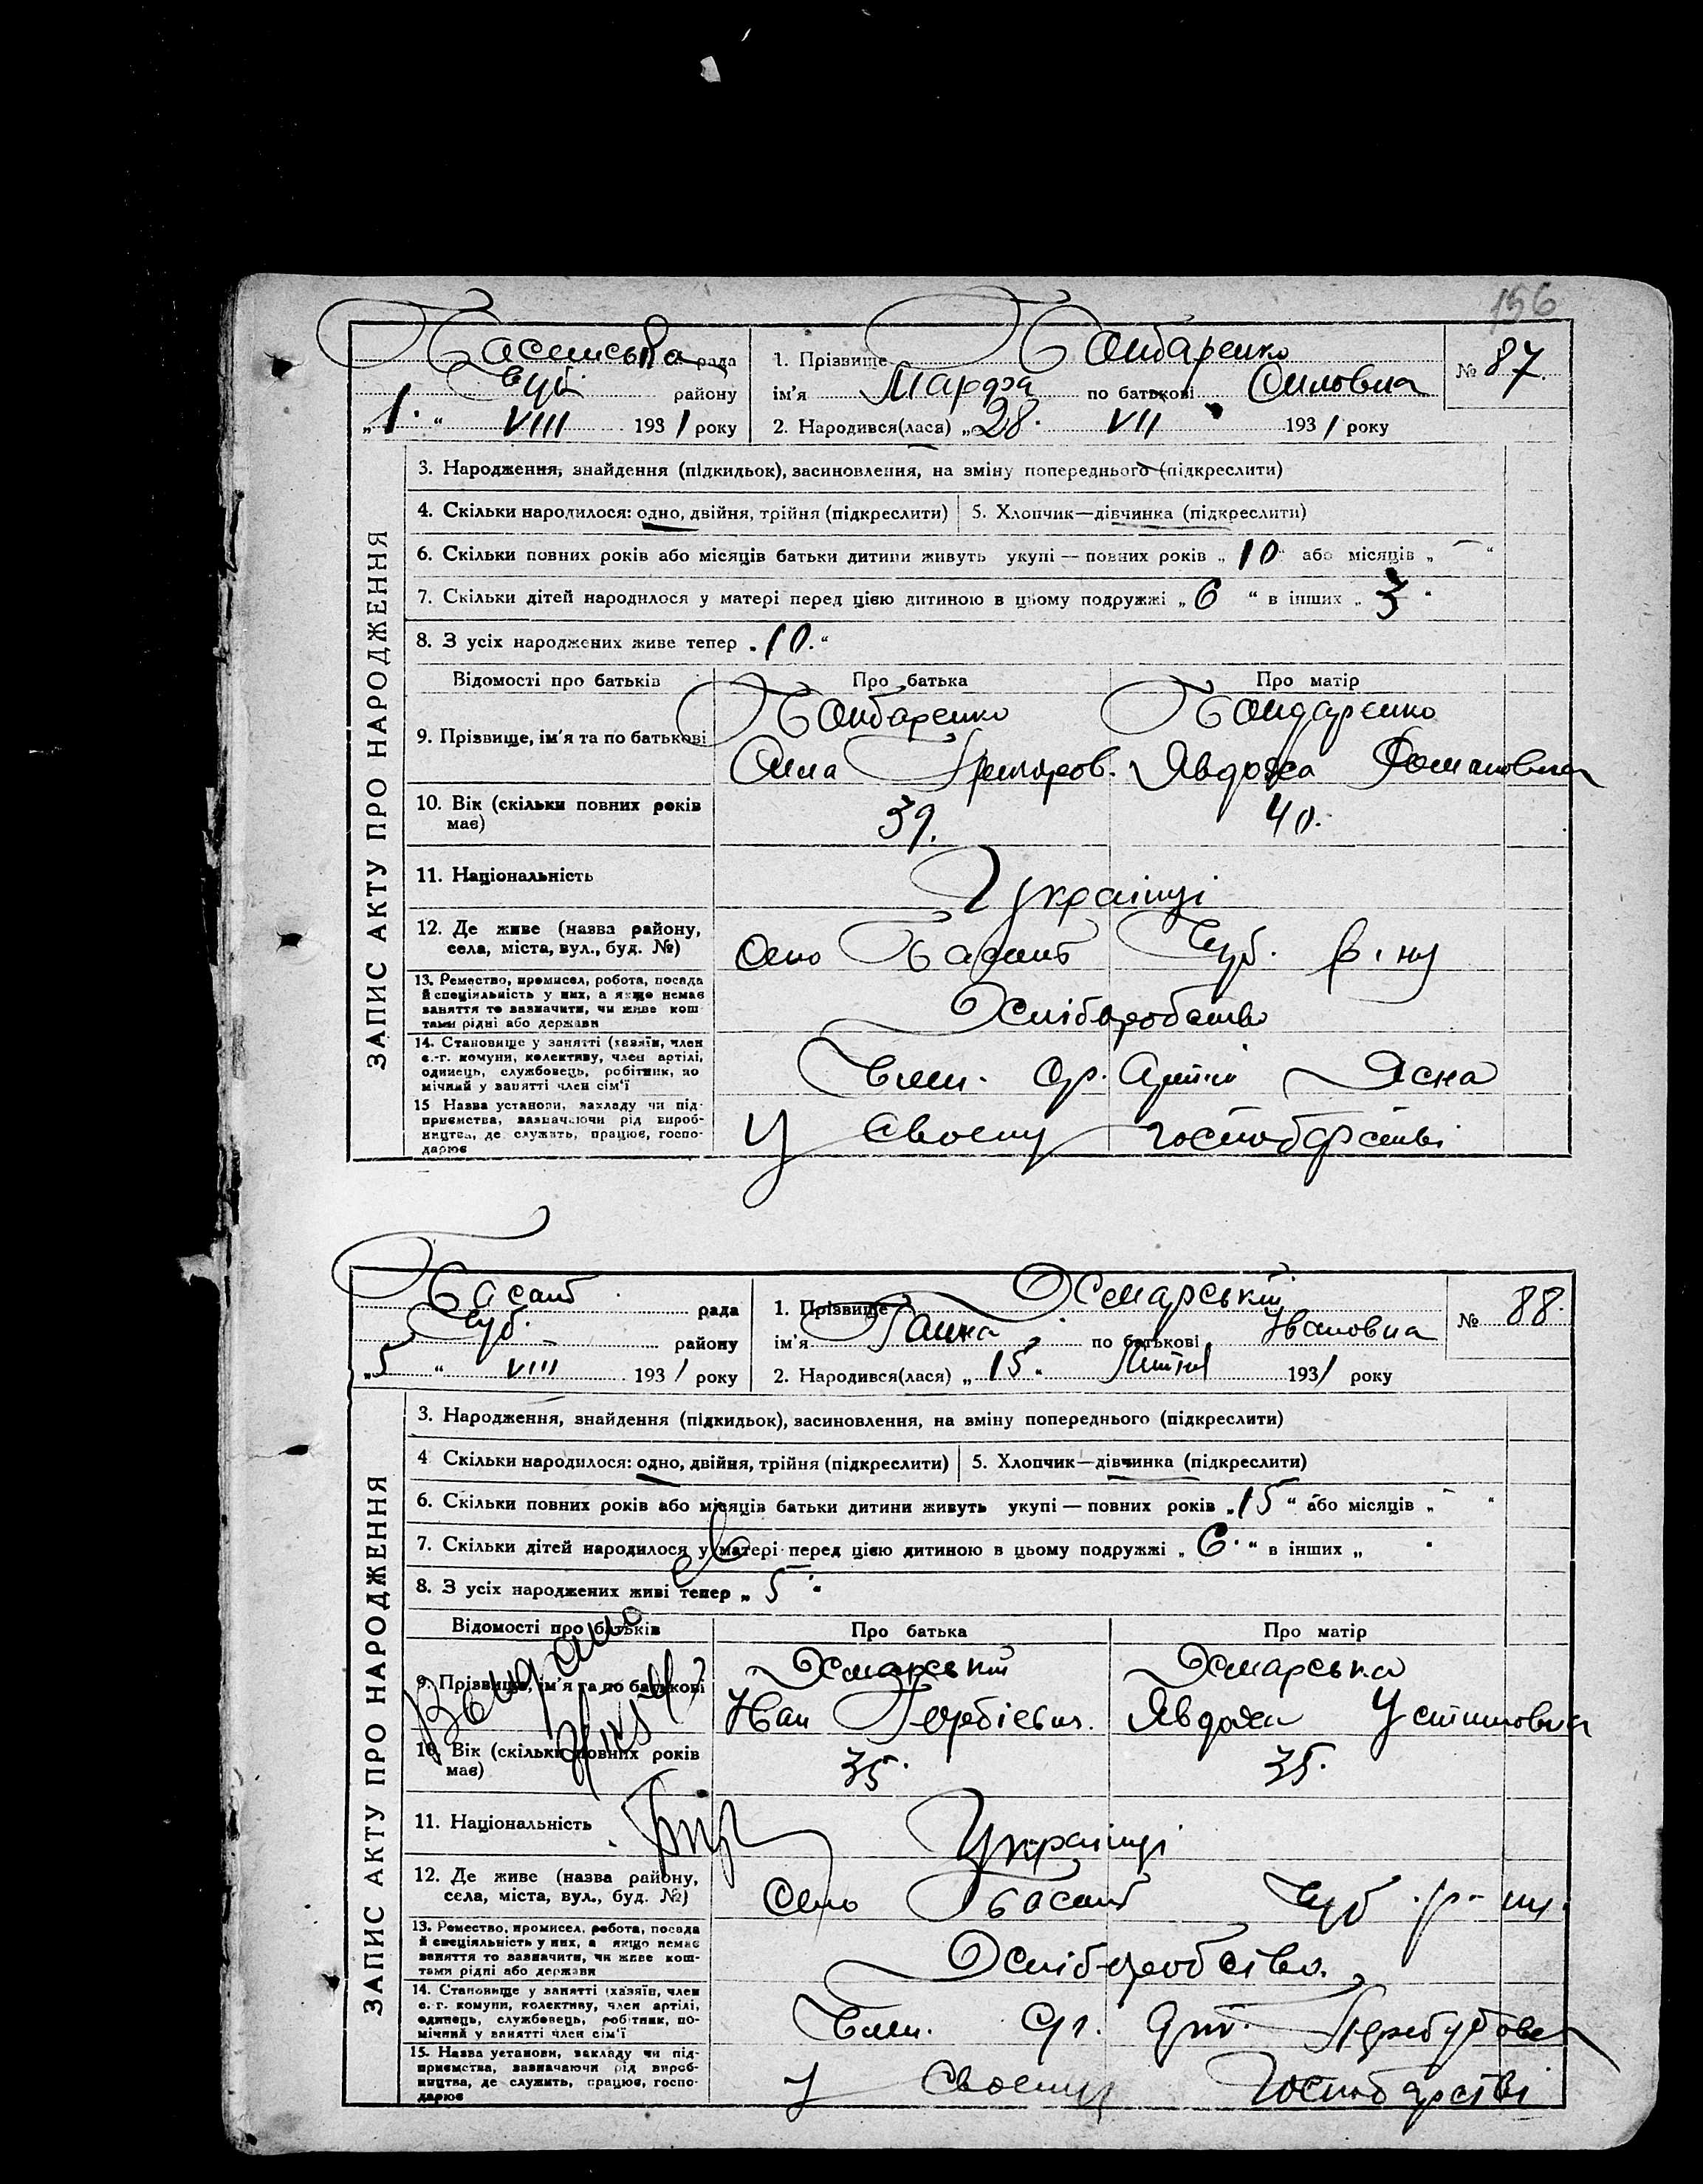 156
Басанська рада 1. Прізвище Бондаренко № 87.
Чуб. району ім'я Марфа по батькові Силовна
„1.“ VIII 1931 року 2. Народився(лася) „28. VII 1931 року
ЗАПИС АКТУ ПРО НАРОДЖЕННЯ
3. Народження, знайдення (підкидьок), засиновлення, на зміну попереднього (підкреслити)
4. Скільки народилося: одно, двійня, трійня (підкреслити) 5. Хлопчик—дівчинка (підкреслити)
6. Скільки повних років або місяців батьки дитини живуть укупі — повних років „10“ або місяців „—“
7. Скільки дітей народилося у матері перед цією дитиною в цьому подружжі „6“ в інших „3“
8. З усіх народжених живе тепер „10.“
Відомості про батьків Про батька Про матір
Бондаренко Бондаренко
9. Прізвище, ім'я та по батькові
Сила Григоров. Явдоха Романовна
10. Вік (скільки повних років 39. 40.
має)
11. Національність Українці
12. Де живе (назва району,
села, міста, вул., буд. №) Село Басань Чуб. р-ну
13. Ремество, промисел, робота, посада
й спеціяльність у них, а якщо немає
заняття то зазначити, чи живе кош- Хліборобство
тами рідні або держави
14. Становище у занятті (хазяїн, член
с.-г. комуни, колективу, член артілі,
одинець, службовець, робітник, по Член. Ср. Артілі Ясна
мічний у занятті член сім'ї
15 Назва установи, закладу чи під-
приємства, зазначаючи рід вироб-
ництва, де служить, працює, госпо- У своєму господарстві
дарює
Басань рада 1. Прізвище Хмарський № 88.
Чуб. району ім'я Ганна по батькові Івановна
„5“ VIII 1931 року 2. Народився(лася) „15“ Липня 1931 року
ЗАПИС АКТУ ПРО НАРОДЖЕННЯ
3. Народження, знайдення (підкидьок), засиновлення, на зміну попереднього (підкреслити)
4 Скільки народилося: одно, двійня, трійня (підкреслити) 5. Хлопчик—дівчинка (підкреслити)
6. Скільки повних років або місяців батьки дитини живуть укупі — повних років „15“ або місяців „-“
7. Скільки дітей народилося у матері перед цією дитиною в цьому подружжі „6.“ в інших „
8. З усіх народжених живі тепер „5“
Відомості про батьків Про батька Про матір
Хмарський Хмарська
9. Прізвище, ім'я та по батькові
Іван Явдоха Устимовна
10. Вік (скільки повних років 35. 35.
має)
11. Національність Українці
12. Де живе (назва району,
села, міста, вул., буд. №) Село Басань Чуб. р-ну.
13. Ремество, промисел, робота, посада
й спеціяльність у них, а якщо немає
заняття то зазначити, чи живе кош- Хліборобство.
тами рідні або держави
14. Становище у занятті (хазяїн, член
с.-г. комуни, колективу, член артілі,
одинець, службовець, робітник, по- Член. Ср. Арт. Перебудова
мічний у занятті член сім'ї
15. Назва установи, закладу чи під-
приємства, зазначаючи рід вироб-
ництва, де служить, працює, госпо- У Своєму Господарстві
дарює